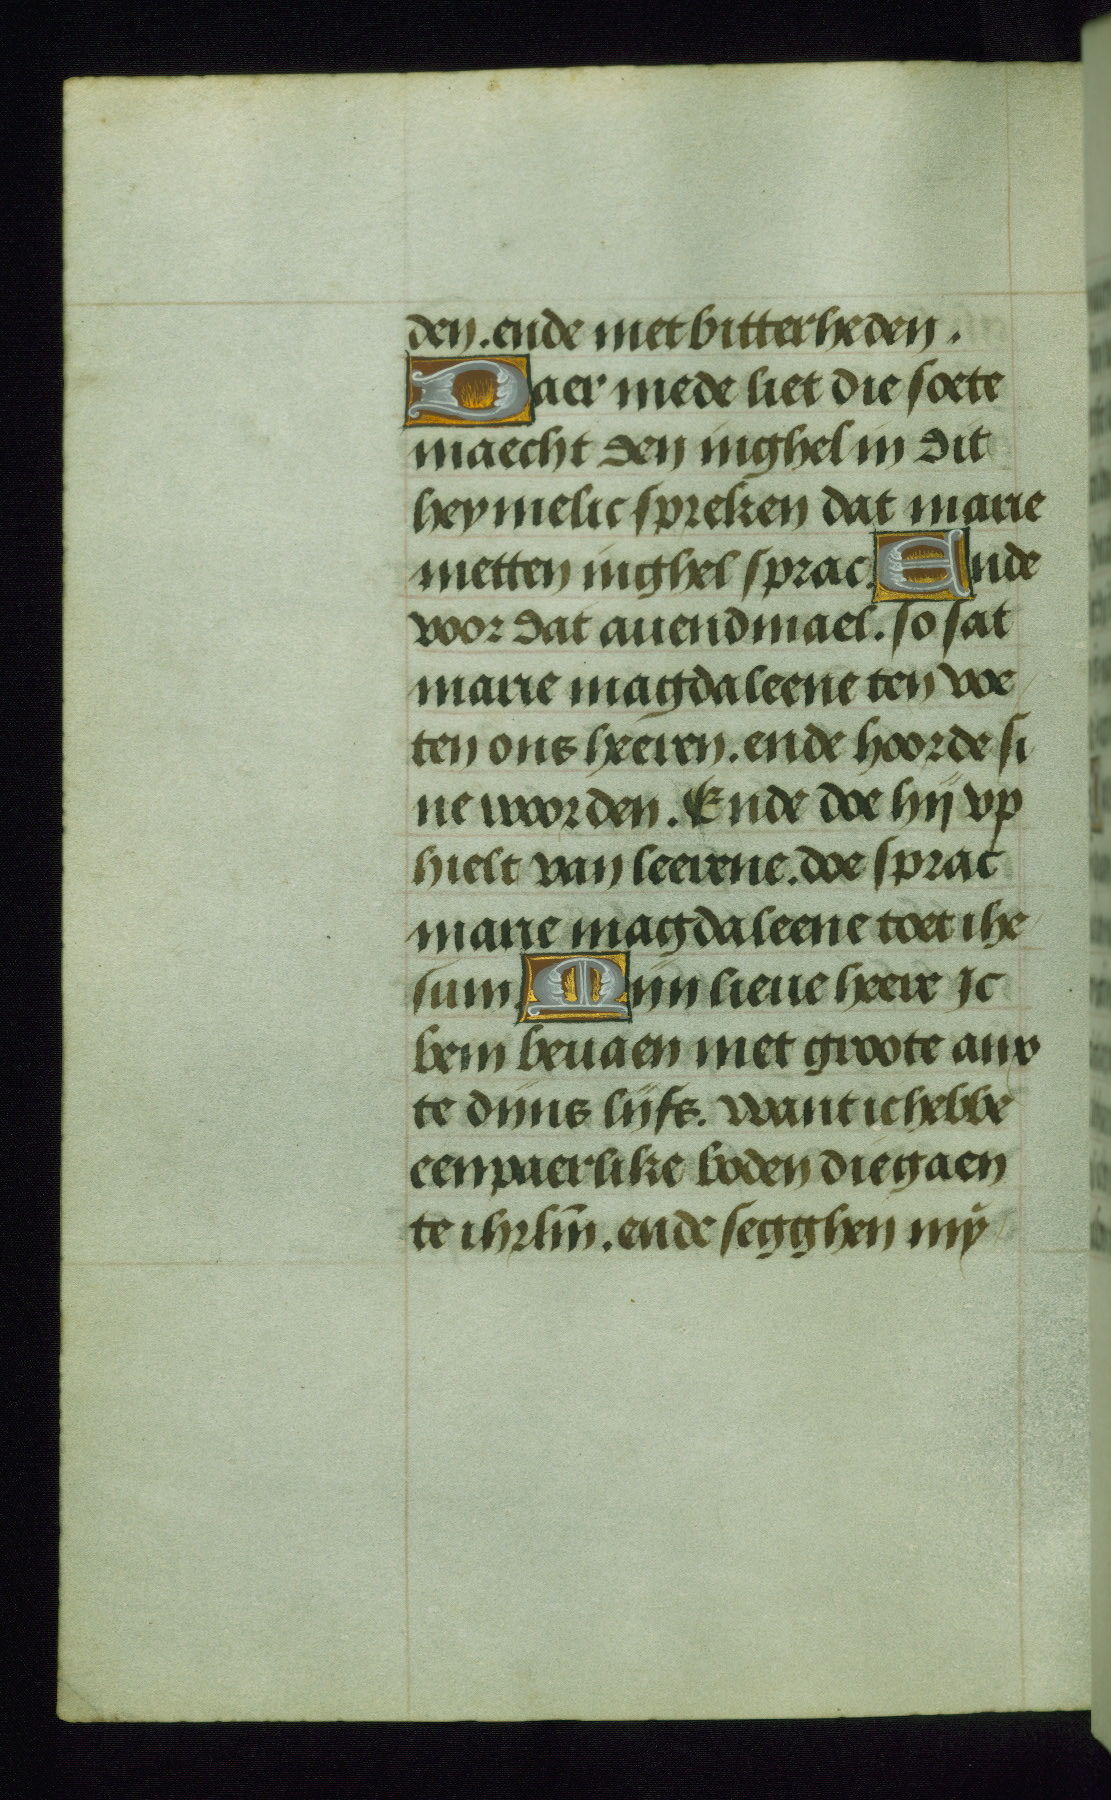 den. ende met bitterheden.
Daer mede liet die soete
maecht den inghel in dit
heymelic spreken dat marie
metten inghel sprac. Ende
voor dat auendmael. so sat
marie magdaleene ten voe
ten ons heeren. ende hoorde si
ne woorden. Ende doe hij vp
hielt van leerene. doe sprac
marie magdaleene toet ihe
sum. Mijn lieue heere Ic
bem beuaen met groote anx
te dijns lijfs. want ic hebbe
eenpaerlike boden die gaen
te ihrlm̄. ende segghen my